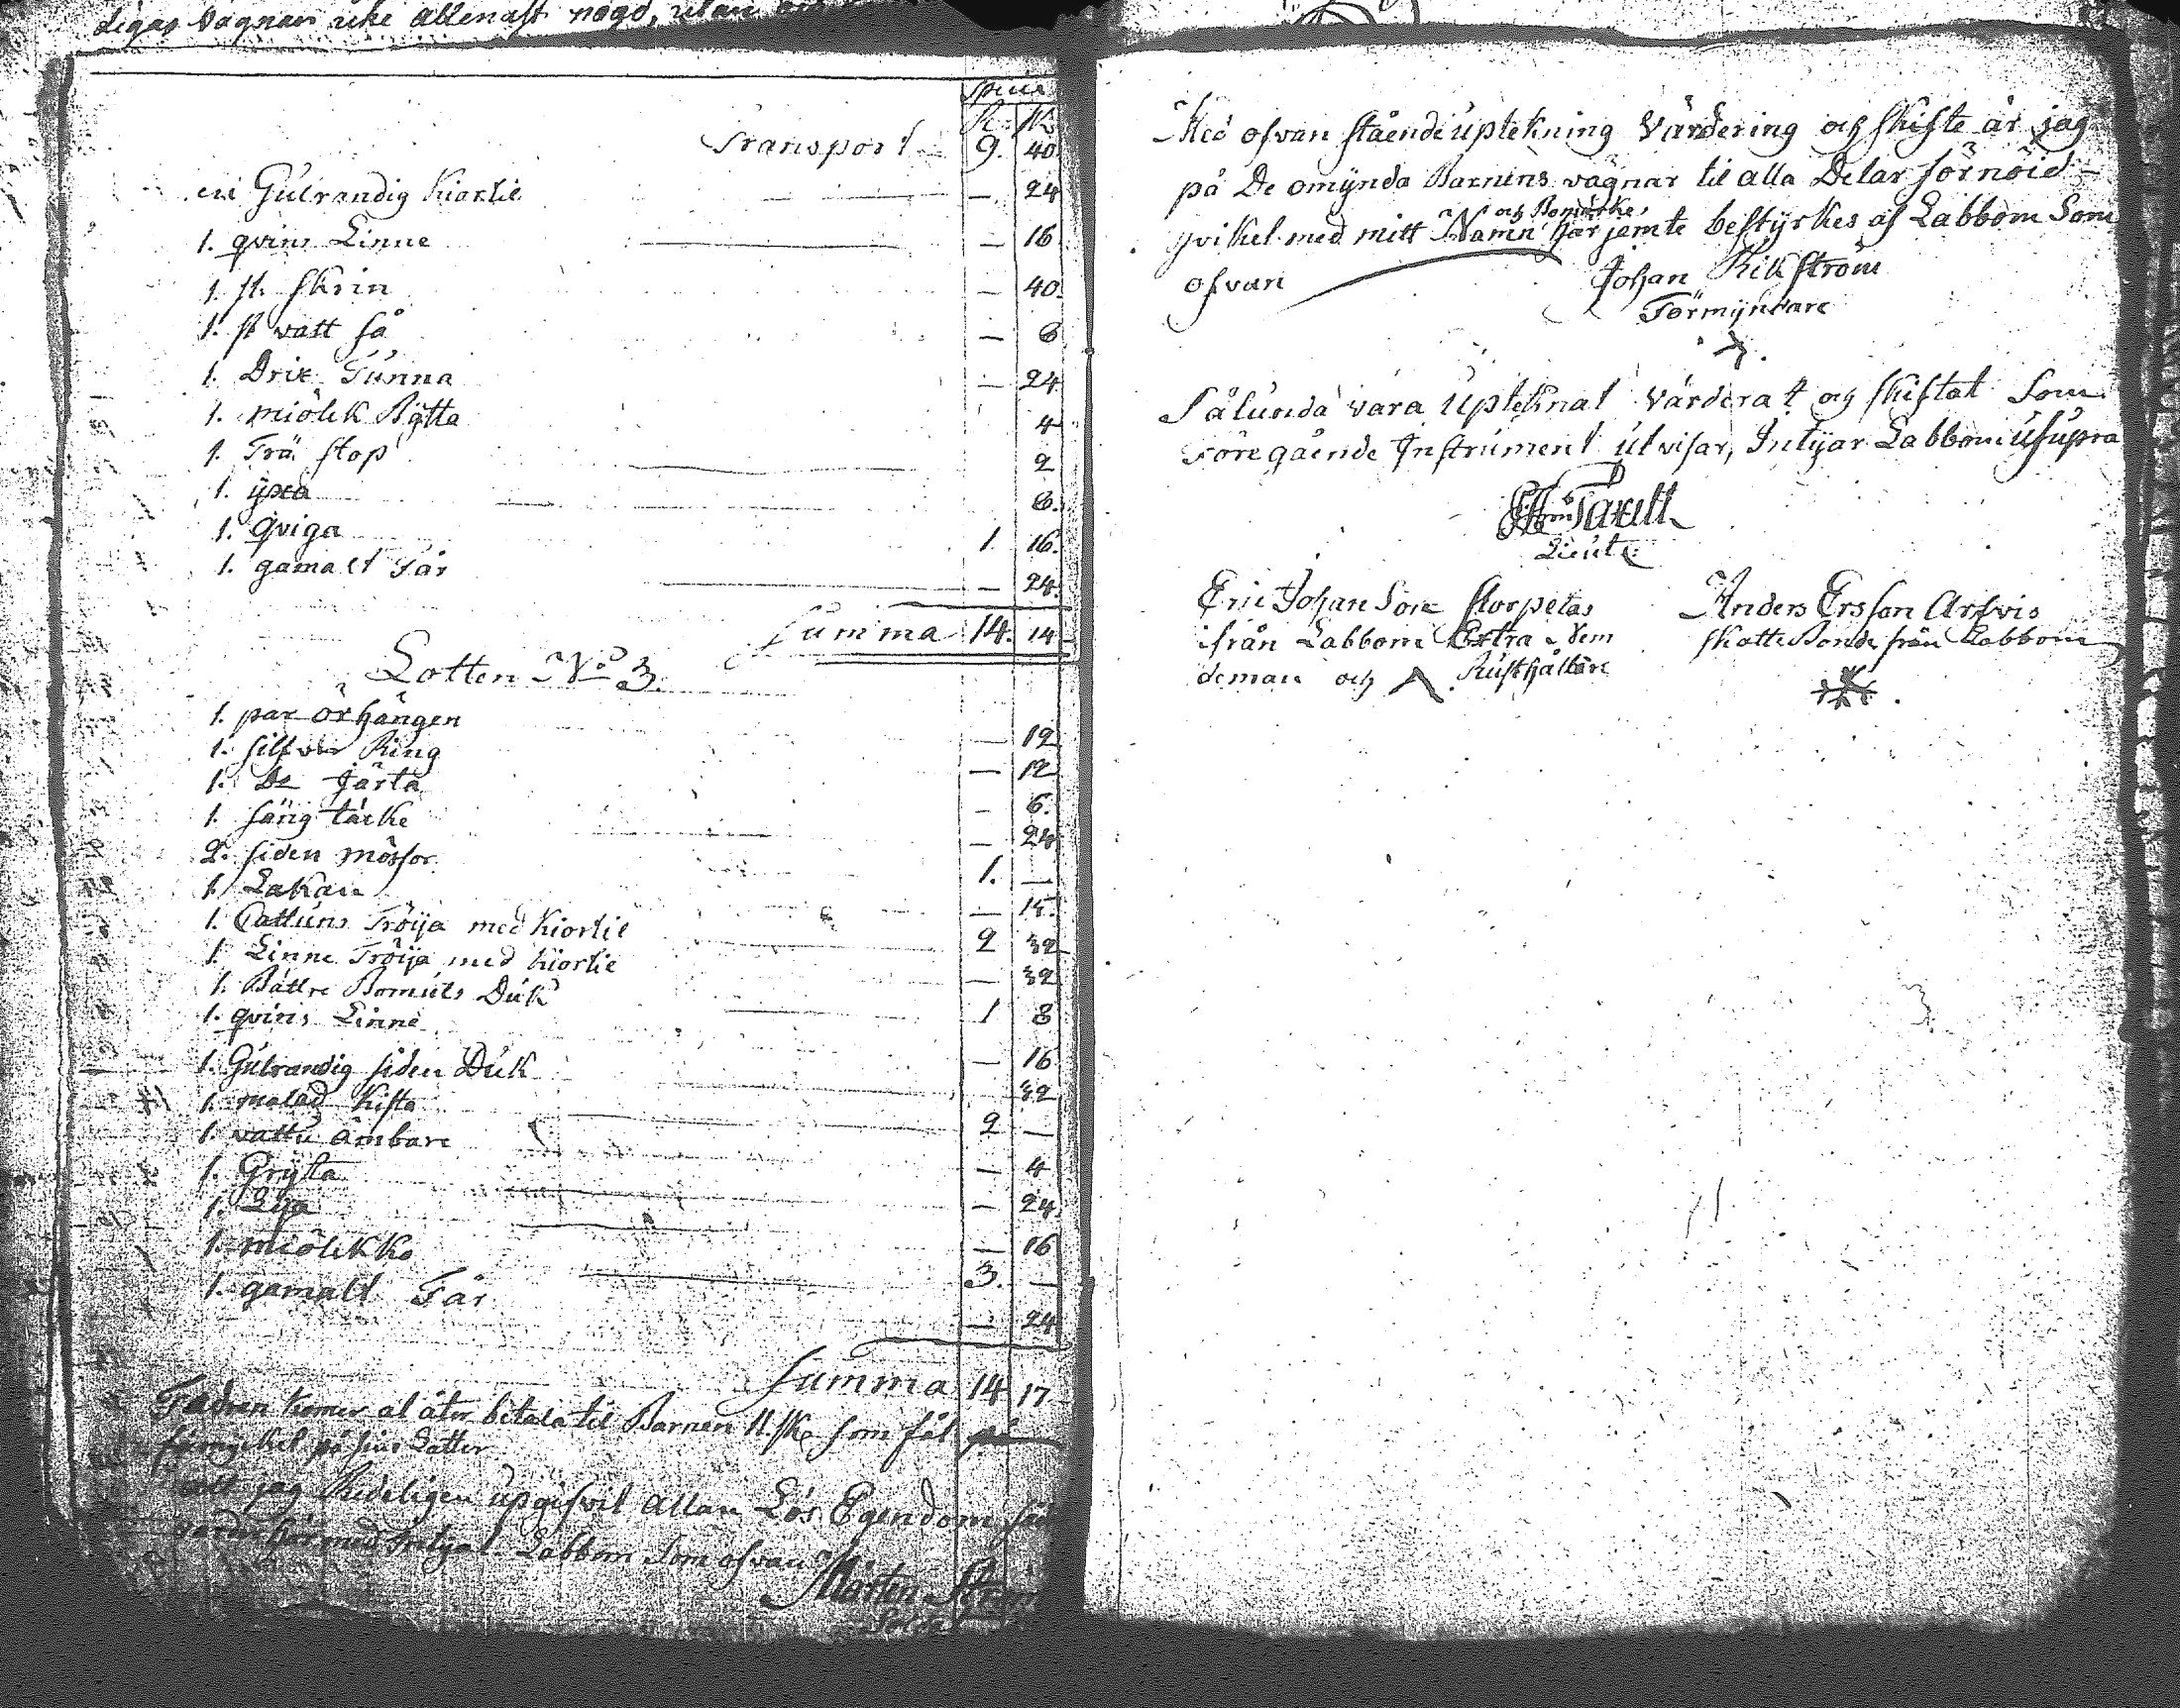 ligas vägnar icke allenast nögd, utan
Specie
R. sk
Transport 9. 40
en Gulrandig kiortil — 24
1. qvins Linne — 16
1. st. skrin — 40.
1. st vatt så — 8
1. Drix Tunna — 24
1. miölk Bytta 4
1. Trä stop 2
1. yxa 8.
1. qviga 1. 16.
1. gamalt Får — 24.
Summa 14. 14
Lotten No 3.
1. par örhängen — 12
1. silfver Ring — 12
1. Do Järta — 6.
1. säng täcke — 24
2. siden mössor 1. —
1 Lakan — 15.
1. Cattuns Tröija med kiortil 2 32
1. Linne Tröija med kiortil — 32
1. Bättre Bomuls Duk 1 8
1. qvins Linne — 16
1. Gulrandig siden Duk 32
1. malad kista 2 —
1. vattu ämbare — 4
1. Gryta — 24
1. Lija — 16
1. miölk ko 3. —
1. gamalt Får — 24
Summa 14 17
Fadren komer at åter betala til Barnen 11. sk som fåt
för mycket på sina Lotter
att jag Redeligen upgifvit allan Lös Egendom
varder här med intygat Labbom Som ofvan
Mårten Ström
Med ofvan stående uptekning värdering och skifte är jag
på De omynda Barnens vägnar til alla Delar förnöid
och Bomärke
hvilket med mitt Namn här jemte bestyrkes af Labbom Som
ofvan Johan Rikström
Förmyndare
Sålunda vara upteknat värderat och skiftat Som
föregående Instrument utvisar, Intygar Labbom ut supra
Taxell
Lieut:
Eric Johan Son Storpetas
ifrån Labbom Extra Nem
deman och Rusthållare
Anders Ersson Arfvis
skatte Bonde från Labbom